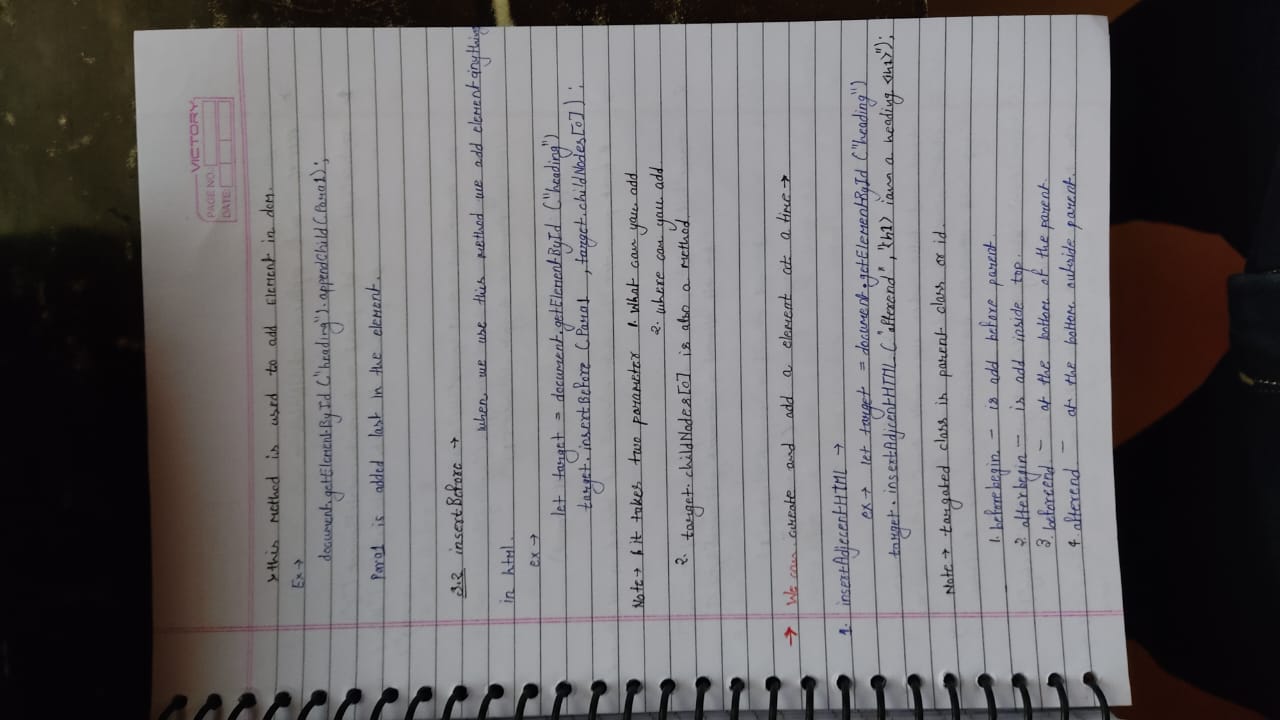 VICTORY
PAGE NO.:
DATE:
>this method is used to add Element in dom.
Ex →
document.getElementById ("heading").appendChild (Para1);
Para1 is added last in the element.
3.2 insertBefore →
when we use this method we add element anything
in html.
ex →
let target = document.getElementById ("heading")
target.insertBefore (Para1 , target.childNodes[0]);
Note → it takes two parameter 1. What can you add
2. where can you add
2. target.childNodes[0] is also a method.
→ We can create and add a element at a time →
1. insertAdjecentHTML →
ex → let target = document.getElementById ("heading")
target.insertAdjcentHTML ("afterend", "<h1> iam a heading <h1>");
Note → targated class is parent class or id.
1. beforebegin - is add before parent.
2 afterbegin - is add inside top.
3. beforeend - at the bottom of the parent.
4. afterend - at the bottom outside parent.